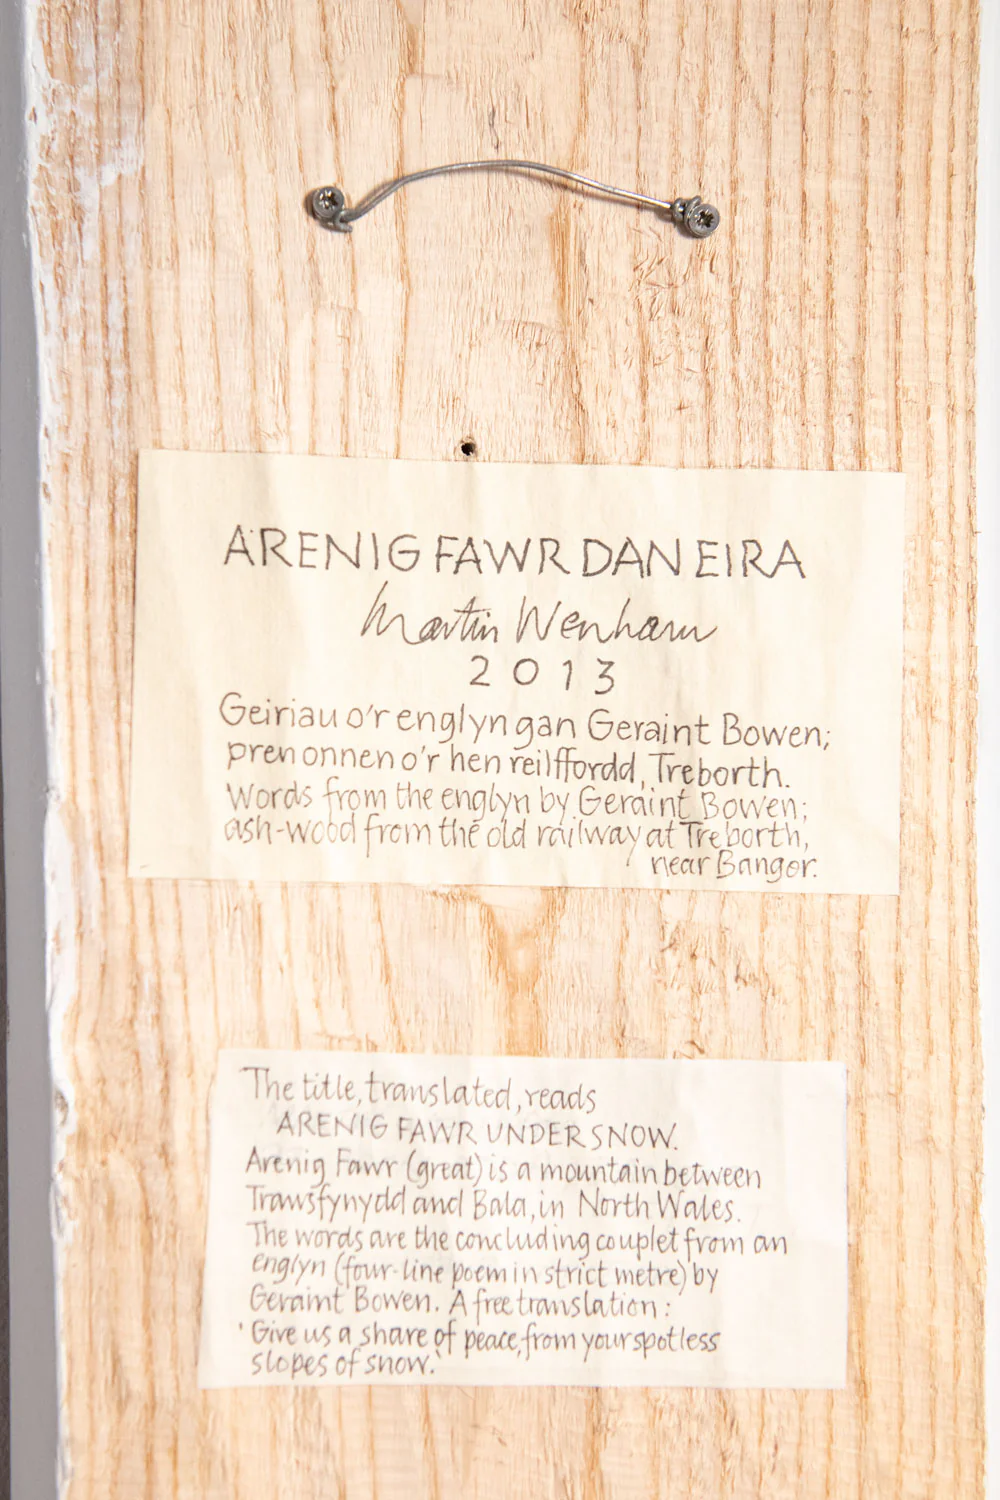 ARENIG FAWR DAN EIRA
Martin Wenham
2013
Geiriau o'r englyn gan Geraint Bowen;
pren onnen o'r hen reilffordd, Treborth.
Words from the englyn by Geraint Bowen;
ash-wood from the old railway at Treborth,
near Bangor.
The title, translated, reads
ARENIG FAWR UNDER SNOW.
Arenig Fawr (great) is a mountain between
Trawsfynydd and Bala, in North Wales.
The words are the concluding couplet from an
englyn (four-line poem in strict metre) by
Geraint Bowen. A free translation:
'Give us a share of peace, from your spotless
slopes of snow.'